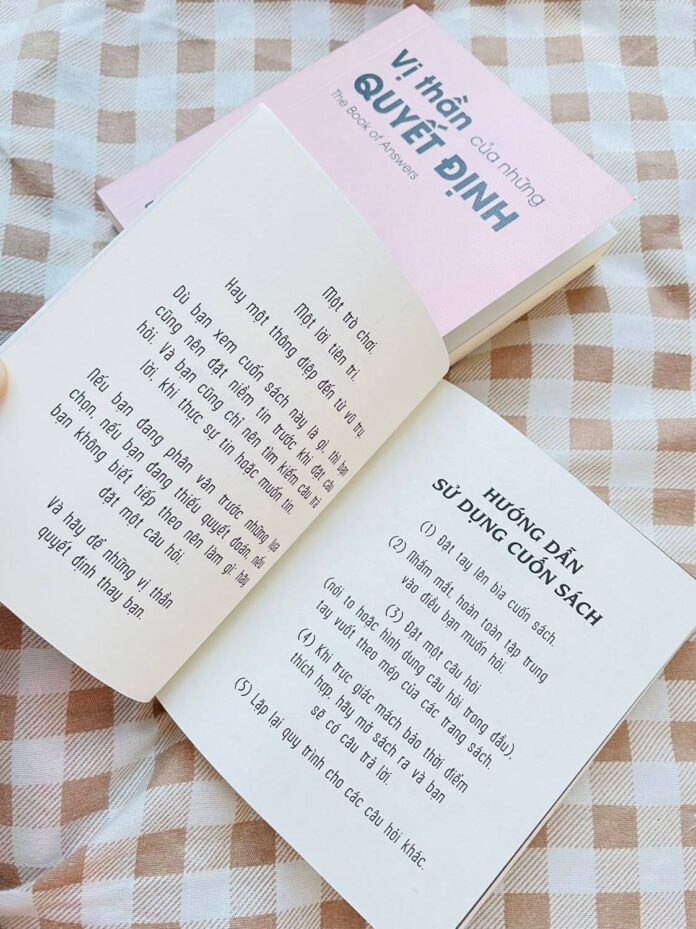 Vị thần của những
QUYẾT ĐỊNH
The Book of Answers
Một trò chơi.
Một lời tiên tri.
Hay một thông điệp đến từ vũ trụ.
Dù bạn xem cuốn sách này là gì, thì bạn
cũng nên đặt niềm tin trước khi đặt câu
hỏi. Và bạn cũng chỉ nên tìm kiếm câu trả
lời, khi thực sự tin hoặc muốn tin.
Nếu bạn đang phân vân trước những lựa
chọn, nếu bạn đang thiếu quyết đoán, nếu
bạn không biết tiếp theo nên làm gì; hãy
đặt một câu hỏi.
Và hãy để những vị thần
quyết định thay bạn.
HƯỚNG DẪN
SỬ DỤNG CUỐN SÁCH
(1) Đặt tay lên bìa cuốn sách.
(2) Nhắm mắt, hoàn toàn tập trung
vào điều bạn muốn hỏi.
(3) Đặt một câu hỏi
(nói to hoặc hình dung câu hỏi trong đầu),
tay vuốt theo mép của các trang sách.
(4) Khi trực giác mách bảo thời điểm
thích hợp, hãy mở sách ra và bạn
sẽ có câu trả lời.
(5) Lặp lại quy trình cho các câu hỏi khác.